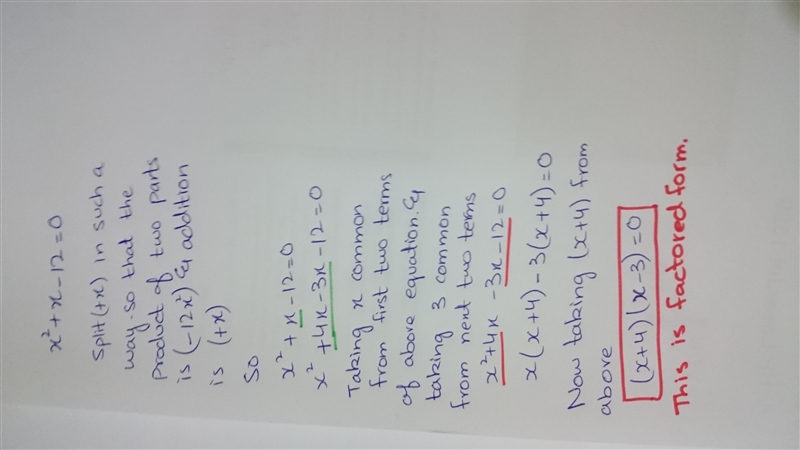 x² + x - 12 = 0
Split (+x) in such a
way. so that the
product of two parts
is (-12x²) & addition
is (+x)
So
x² + x - 12 = 0
x² + 4x - 3x - 12 = 0
Taking x common
from first two terms
of above equation. &
taking 3 common
from next two terms
x² + 4x - 3x - 12 = 0
x(x+4) - 3(x+4) = 0
Now taking (x+4) from
above
(x+4)(x-3) = 0
This is factored form.